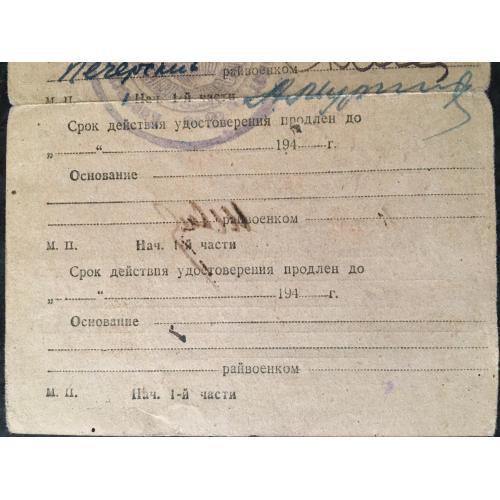 Печерский райвоенком
М. П. Нач. 1-й части
Срок действия удостоверения продлен до
„ “ 194 г.
Основание
райвоенком
М. П. Нач. 1-й части
Срок действия удостоверения продлен до
„ “ 194 г.
Основание
райвоенком
М. П. Нач. 1-й части